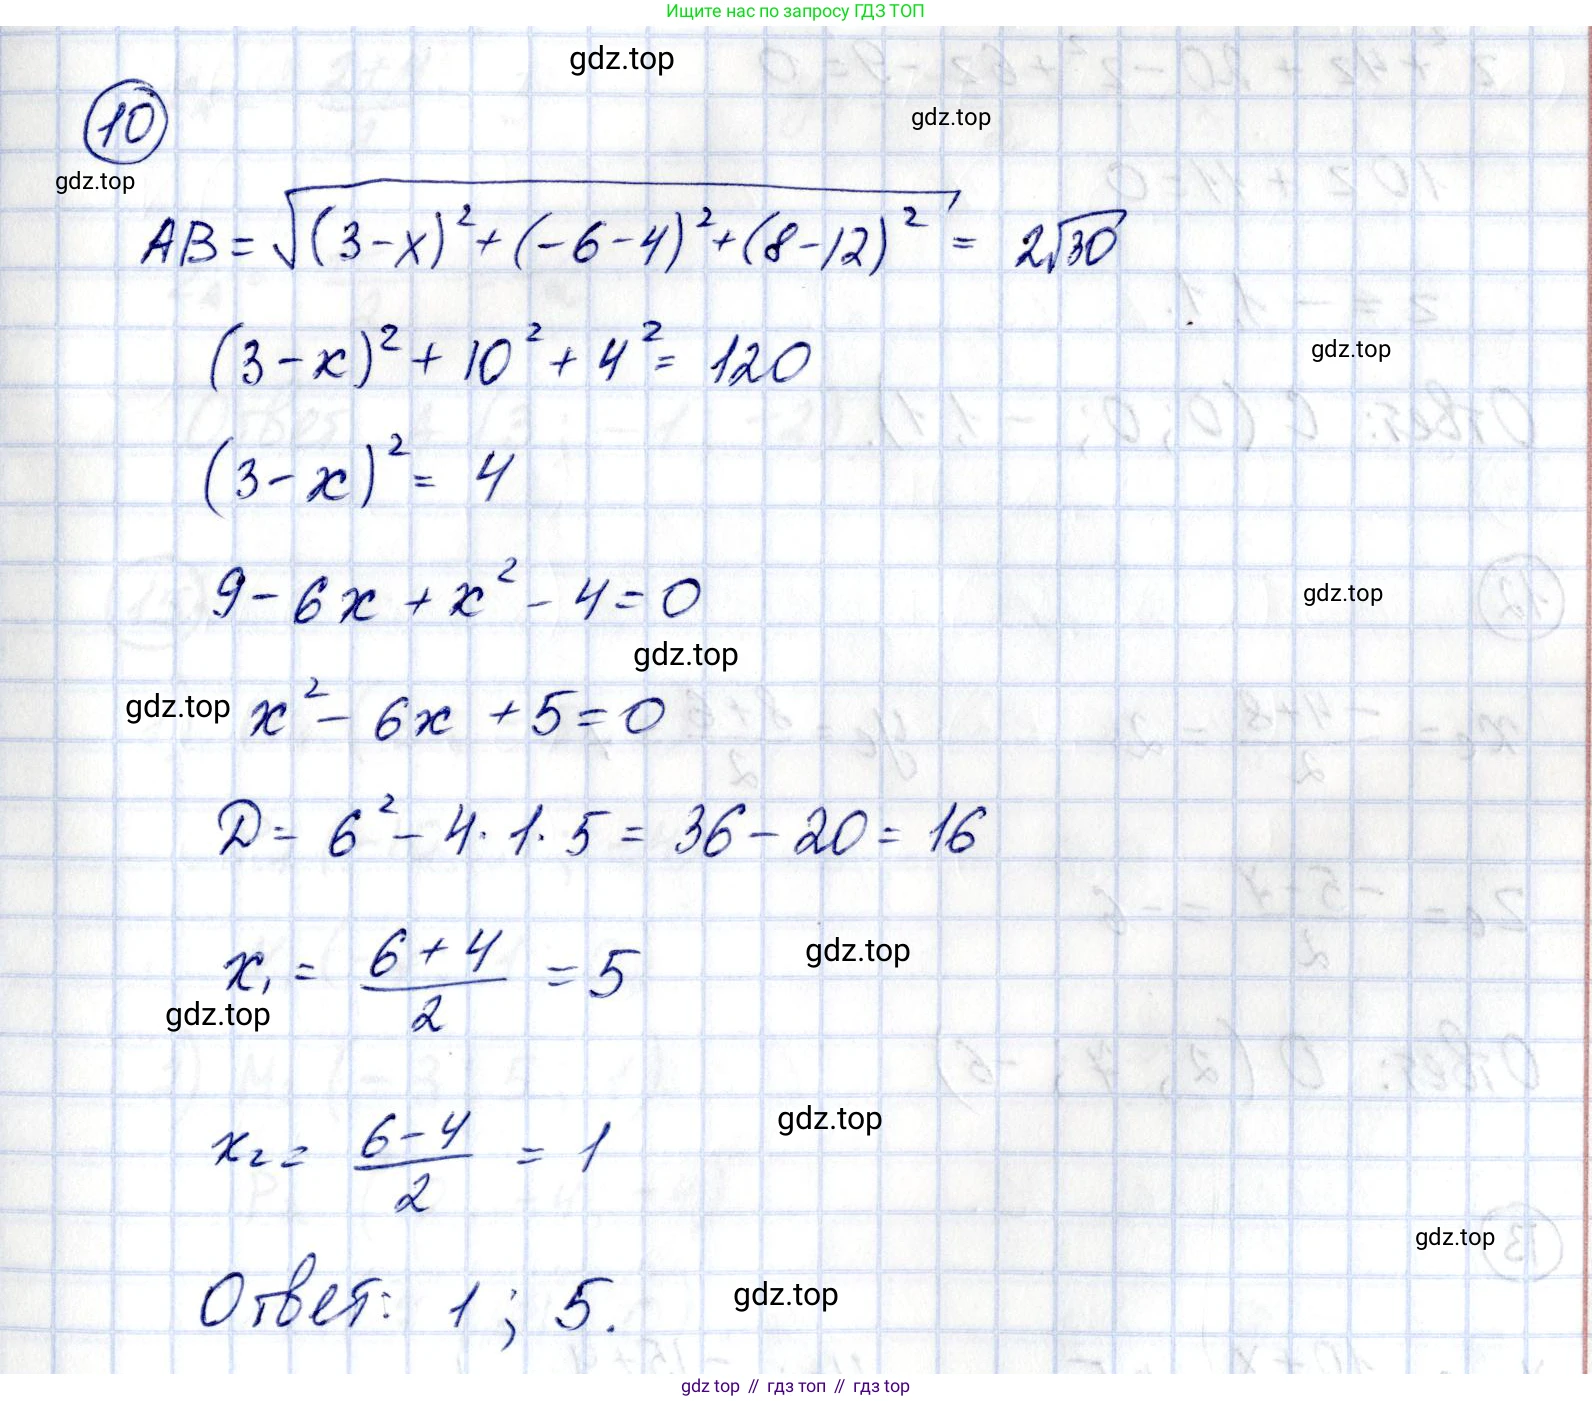 Ищите нас по запросу ГДЗ ТОП
gdz.top
10
gdz.top
gdz.top
AB = √((3-x)² + (-6-4)² + (8-12)²) = 2√30
(3-x)² + 10² + 4² = 120
gdz.top
(3-x)² = 4
9 - 6x + x² - 4 = 0
gdz.top
gdz.top
gdz.top x² - 6x + 5 = 0
D = 6² - 4·1·5 = 36 - 20 = 16
x₁ = (6+4)/2 = 5
gdz.top
gdz.top
x₂ = (6-4)/2 = 1
gdz.top
gdz.top
Ответ: 1; 5.
gdz.top
gdz top // гдз топ // гдз top